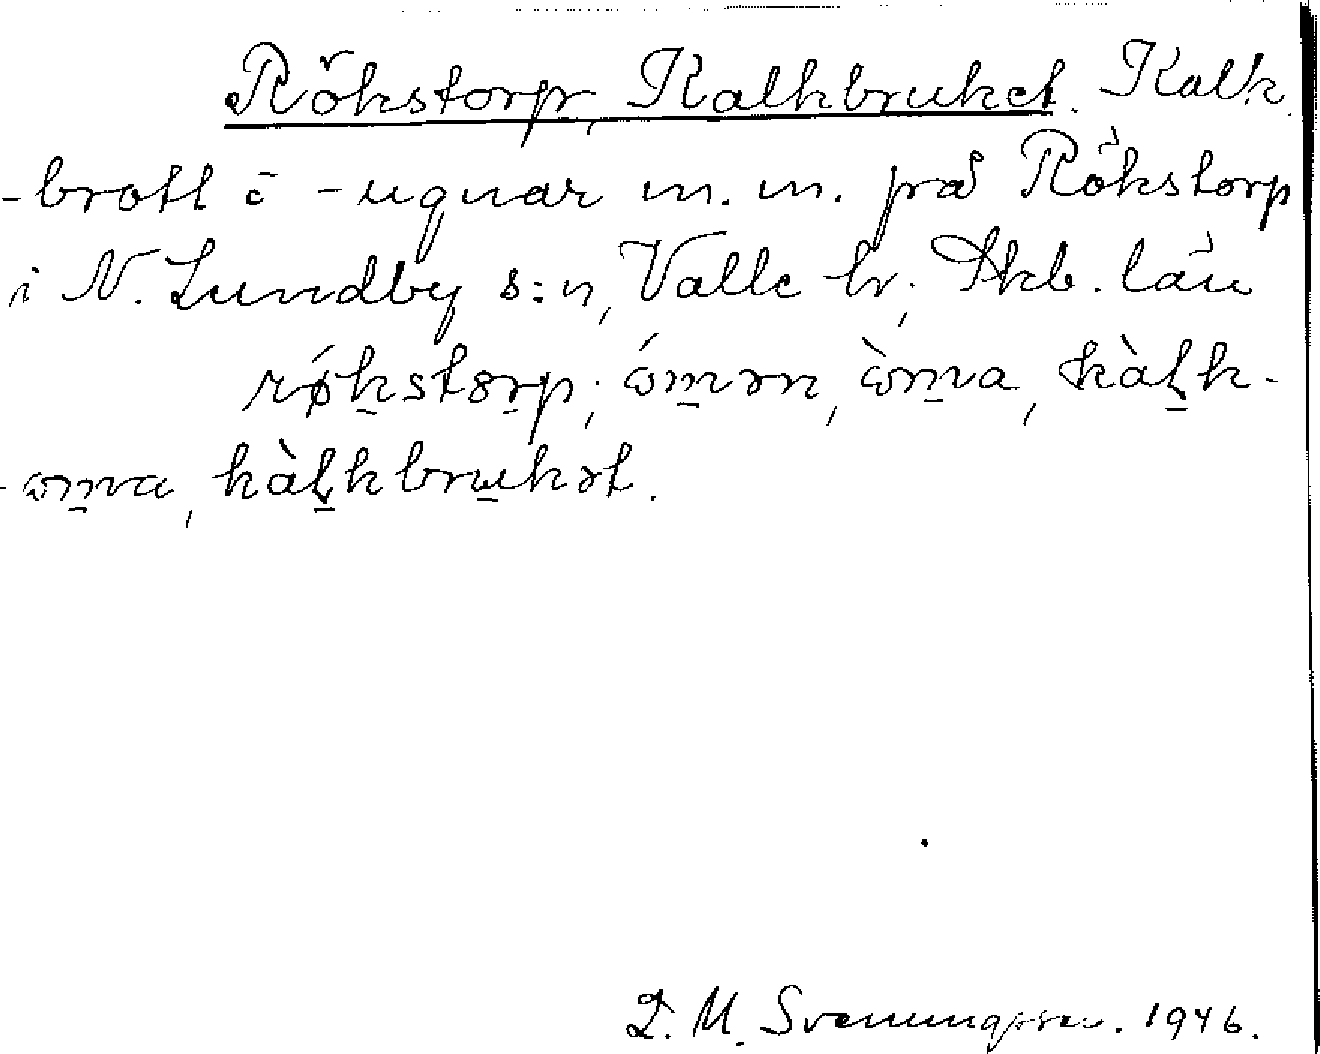 Rökstorp, Kalkbruket. Kalk-
-brott o -ugnar m. m. på Rökstorp
i N. Lundby s:n, Valle hr, Skb. län
rǿk̲stɔr̲p; ɷ́m̲ən, ɷ̀m̲na, kàḻk-
-ɷm̲na, kàḻkbru̲kət.
D. M. Svenungsson. 1946.